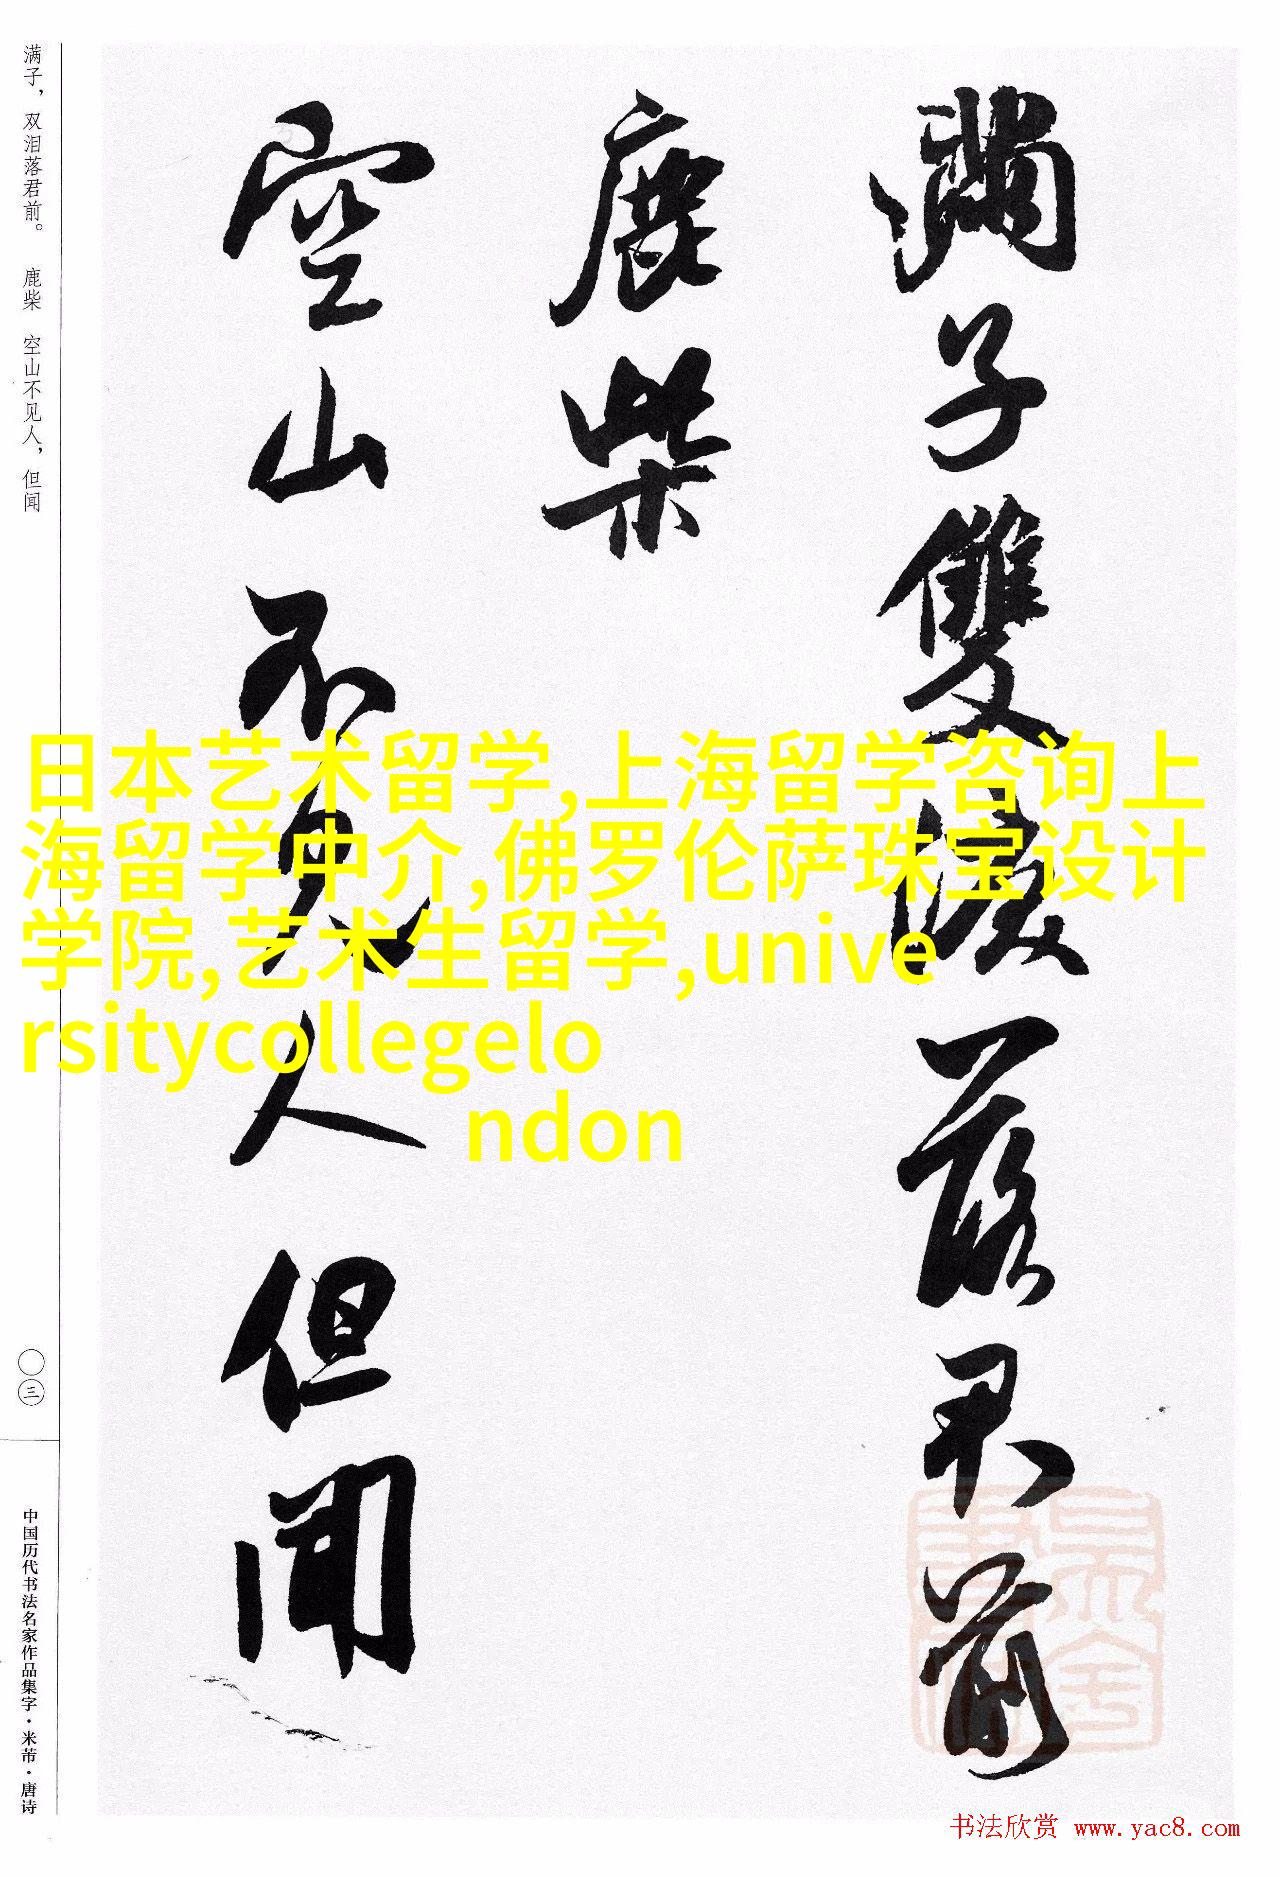 满子，双泪落君前。 鹿柴 空山不见人，但闻
〇三
中国历代书法名家作品集字·米芾·唐诗
滿子雙淚落君前
鹿柴
空山不見人但聞
日本艺术留学,上海留学咨询上
海留学中介,佛罗伦萨珠宝设计
学院,艺术生留学,unive
rsitycollegelo
ndon
书法欣赏 www.yac8.com